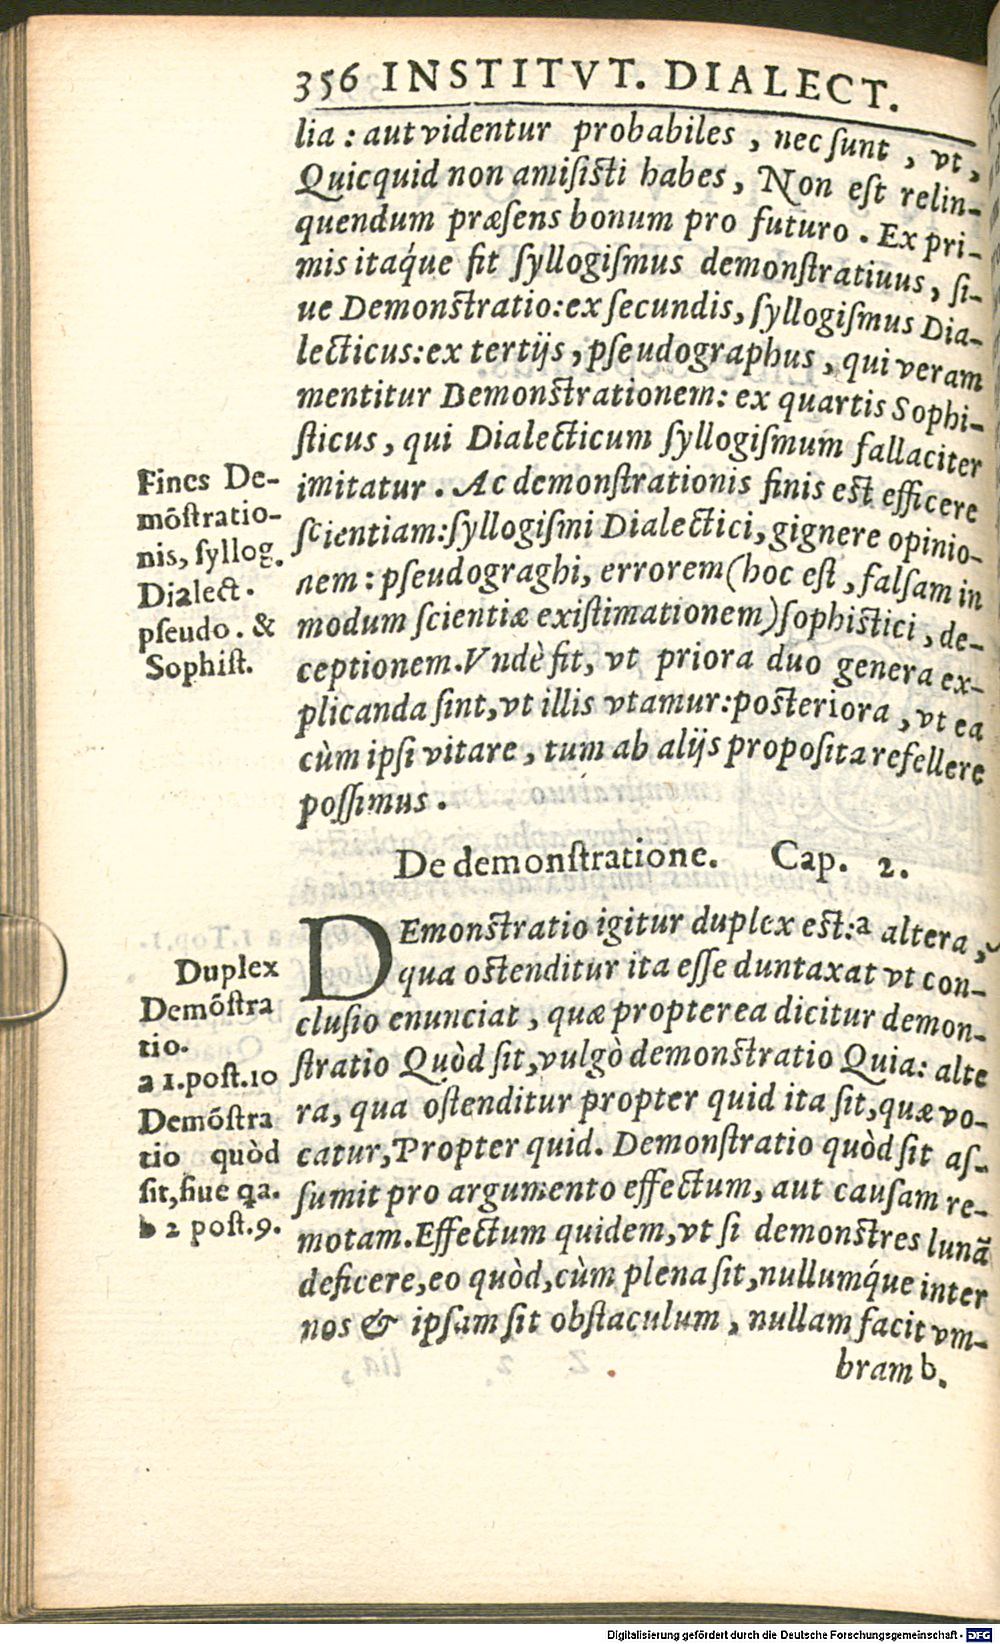 356 INSTITVT. DIALECT.
lia : aut videntur probabiles , nec ſunt , vt ,
Quicquid non amiſiſti habes , Non eſt relin-
quendum præſens bonum pro futuro . Ex pri-
mis itaq́ue fit ſyllogiſmus demonſtratiuus , ſi-
ue Demonſtratio: ex ſecundis, ſyllogiſmus Dia-
lecticus: ex tertijs , pſeudographus , qui veram
mentitur Demonſtrationem: ex quartis Sophi-
ſticus , qui Dialecticum ſyllogiſmum fallaciter
imitatur . Ac demonſtrationis finis eſt efficere
ſcientiam: ſyllogiſmi Dialectici, gignere opinio-
nem : pſeudograghi, errorem (hoc eſt , falſam in
modum ſcientiæ exiſtimationem) ſophiſtici , de-
ceptionem. Vndè fit, vt priora duo genera ex-
plicanda ſint, vt illis vtamur: poſteriora , vt ea
cùm ipſi vitare , tum ab alijs propoſita refellere
poſſimus .
Fines De-
mõſtratio-
nis, ſyllog.
Dialect .
pſeudo . &
Sophiſt.
De demonſtratione. Cap. 2.
DEmonſtratio igitur duplex eſt: a altera ,
qua oſtenditur ita eſſe duntaxat vt con-
cluſio enunciat , quæ propterea dicitur demon-
ſtratio Quòd ſit, vulgò demonſtratio Quia: alte
ra, qua oſtenditur propter quid ita ſit, quæ vo-
catur, Propter quid. Demonſtratio quòd ſit aſ-
ſumit pro argumento effectum, aut cauſam re-
motam. Effectum quidem, vt ſi demonſtres lunã
deficere, eo quòd, cùm plena ſit, nullumq́ue inter
nos & ipſam ſit obſtaculum , nullam facit vm-
bram b.
Duplex
Demõſtra
tio.
a 1. poſt. 10
Demõſtra
tio quòd
ſit, ſiue qa.
b 2 poſt. 9.
Digitalisierung gefördert durch die Deutsche Forschungsgemeinschaft - DFG